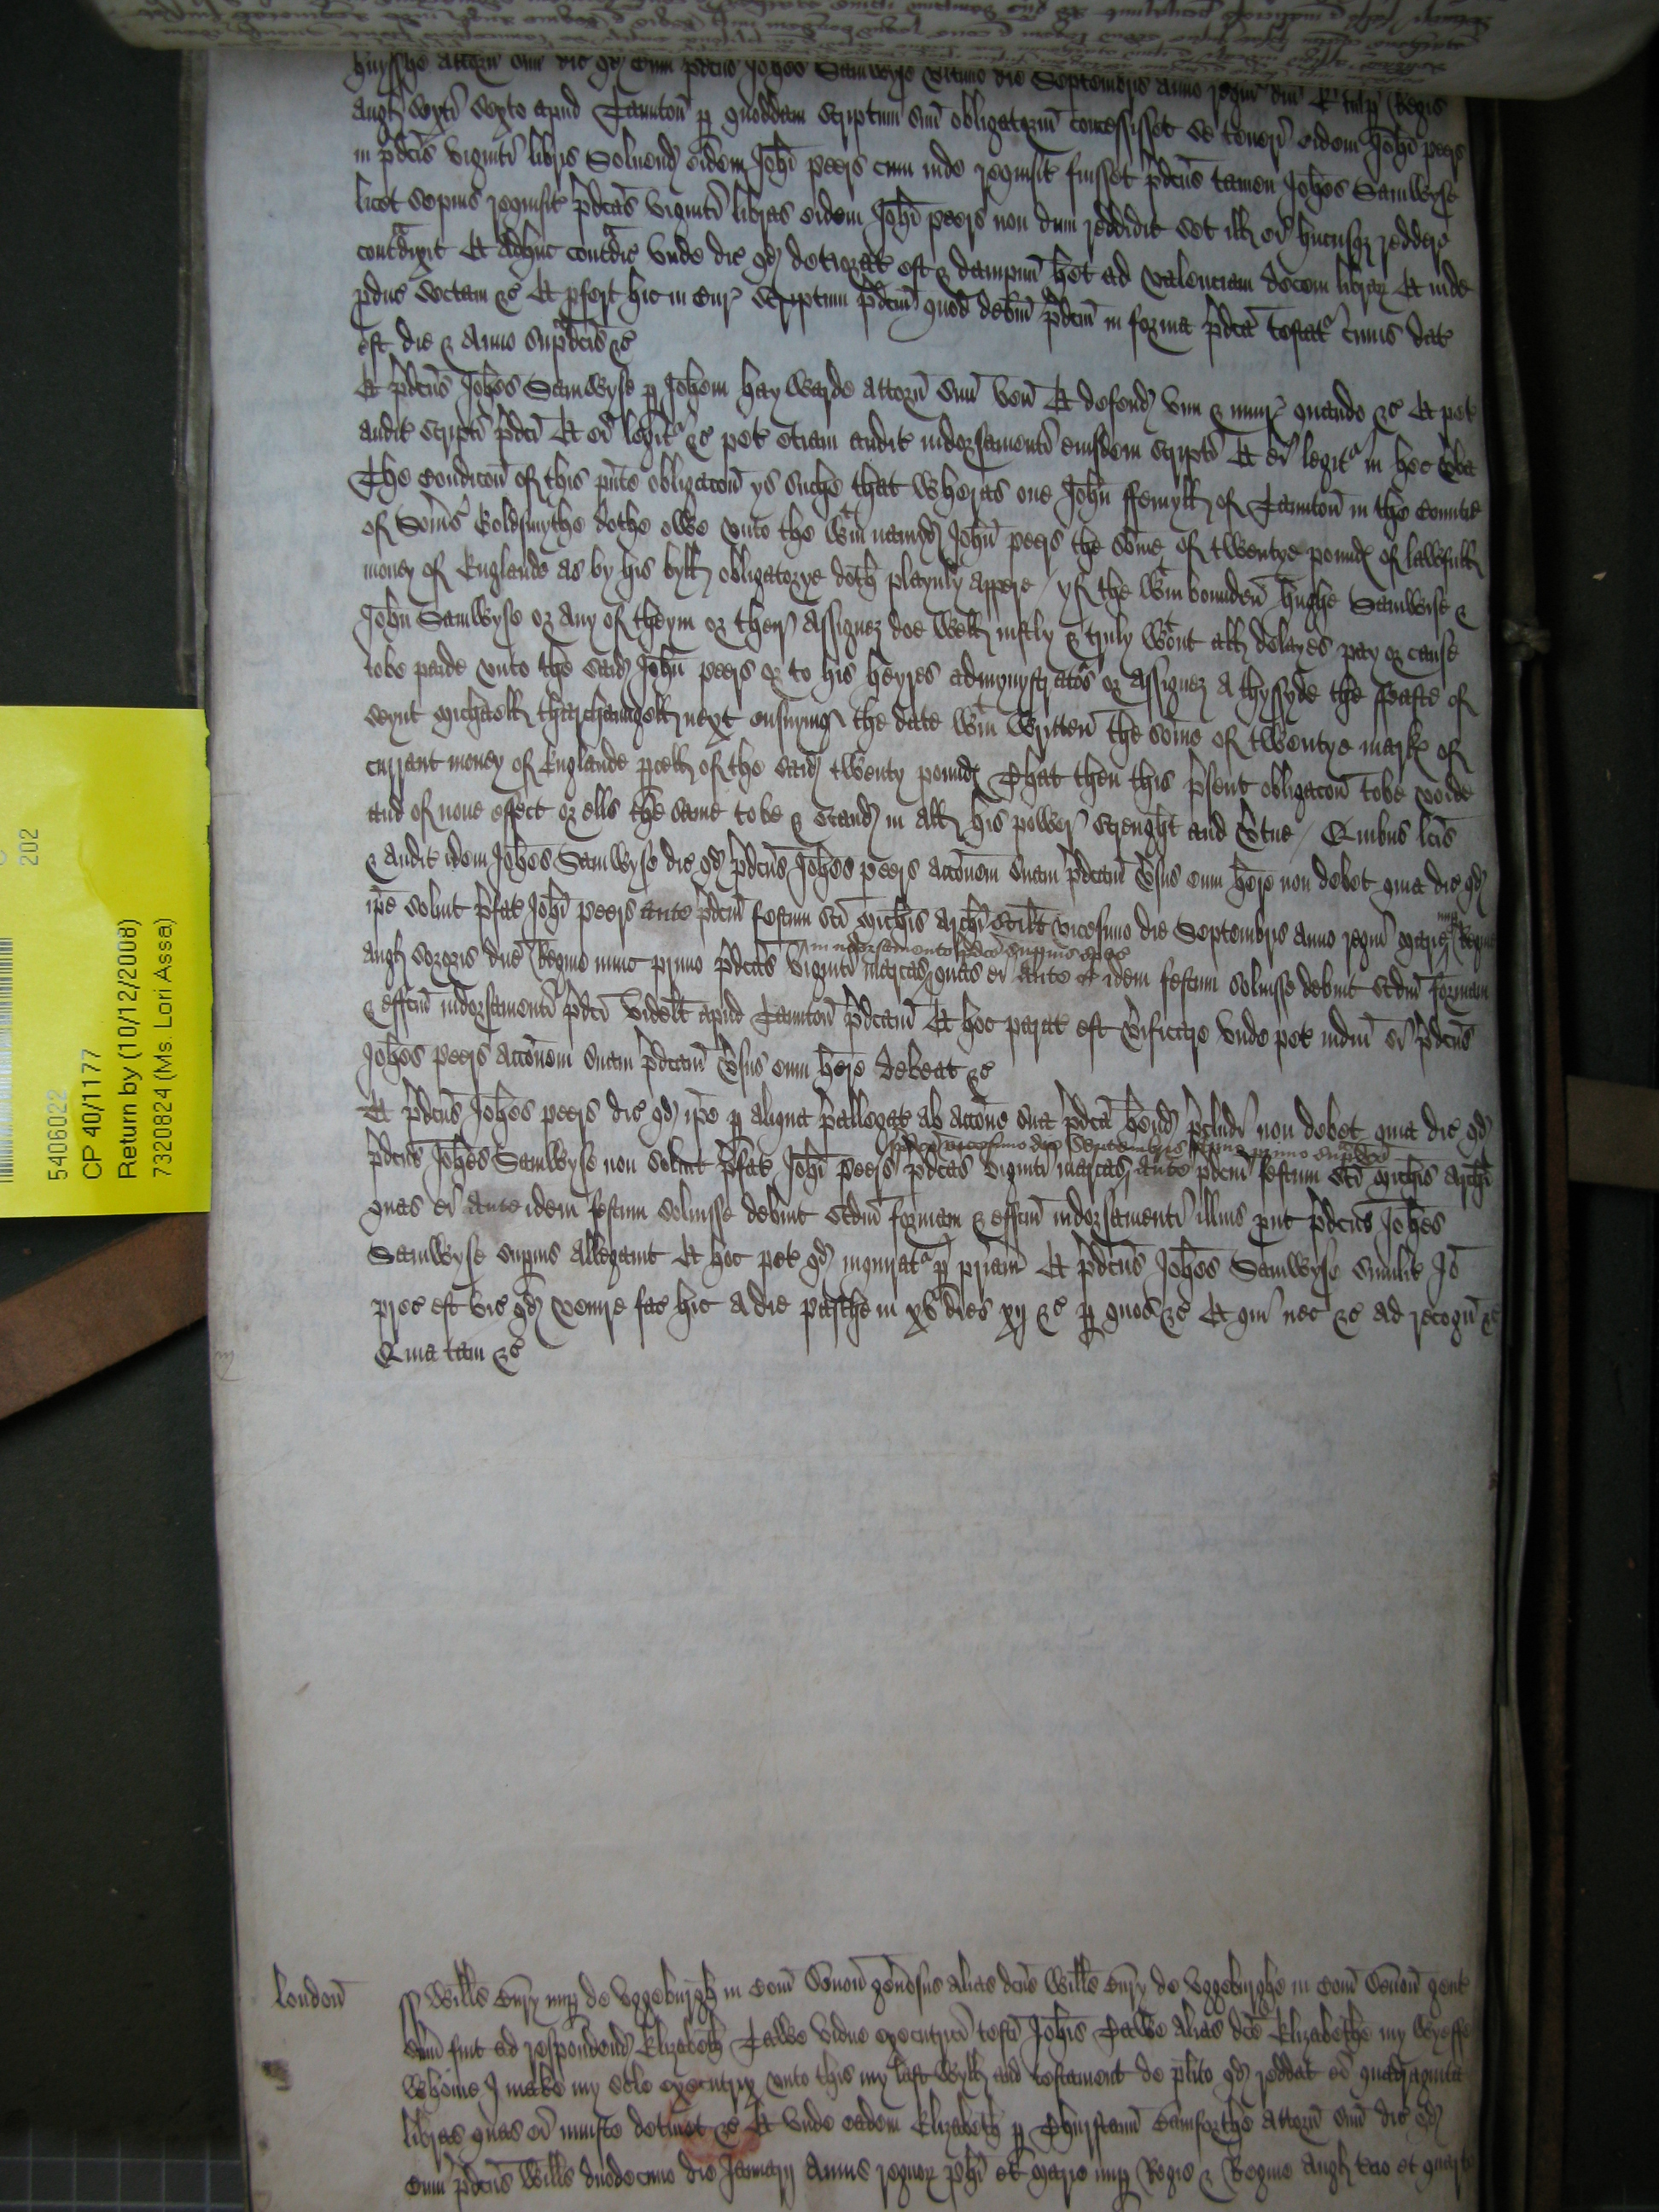 Attorn suu dic qd cum pdcus Johes Samwyse ultimo die Septembris anno regni dni E nup Regis
Angl sexti sexto apud Taunton p quoddam scriptum suu obligatoriu concessisset se teneri eidem Johi peers
in pdcis viginti libris solvend eidem Johi peers cum inde requisit fuisset pdcus tamen Johes Samwyse
licet sepius requisit pdcas viginti libras eidem Johi peers non dum reddidit set ill ei hucusqz reddere
contradixit Et adhuc contradic unde dic qd deteriorat est & dampnu het ad valenciam decem librar Et inde
pduc sectam &c Et pfert hic in Cur scriptum pdcm quod debm pdcm in forma pdca testat cuius dat
est die & Anno supdcis &c
Et pdcus Johes Samwyse p Johem haywarde attorn suu ven Et defend vim & iniur quando &c Et pet
audit scripti pdci Et ei legit &c pet etiam audit indorsamenti eiusdem scripti Et ei legit in hec vba
The Condicon of this pnte obligacon ys suche that wheras one John ffemyll of Taunton in the Countie
of Soms Goldsmythe dothe owe unto the wtin namyd John peers the some of twentye pounds of lawfull
money of Englande as by his byll obligatorye doth playnly appere / yf the wtin bounden hughe Samwise &
John Samwyse or any of theym or thers assignez doe well iustly & truly wtout all delayes pay or cause
tobe paide unto the said John peers or to his heyres admynystrators or assignez A thyssyde the ffeaste of
seynt michaell tharchaungell next ensuyng the date wtin wrytten the some of twentye marks of
currant money of Englande pcell of the said twenty pounds That then this psent obligacon tobe voide
and of none effect or ells the same to be & stand in all his power strenght and vtue / Quibus lcis
& audit idem Johes Samwyse dic qd pdcus Johes peers accionem suam pdcam vsus eum here non debet quia dic qd
ipe solvit pfat Johi peers ante pdcm festum sci michis archi scilt vicesimo die Septembris anno regni marie nup Regine
in indorsamento pdco supius spec
Angl sororis dne Regine nunc primo pdcas viginti marcas quas ei ante idem festum solvisse debuit scdm formam
& effcm indorsamenti pdci videlt apud Taunton pdcam Et hoc parat est vificare unde pet iudm si pdcus
Johes peers accionem suam pdcam vsus eum here debeat &c
Et pdcus Johes peers dic qd ipe p aliqua pallegat ab accone sua pdca hend pcludi non debet quia dic qd
pdco vicesimo die Septembris Anno primo supdco
pdcus Johes Samwyse non solvit pfat Johi peers pdcas viginti marcas ante pdcm festum sci michis archi
quas ei ante idem festum solvisse debuit scdm formam & effcm indorsamenti illius put pdcus Johes
Samwyse supius allegavit Et hoc pet qd inquirat p priam Et pdcus Johes Samwyse similit Io
prec est vic qd venire fac hic A die pasche in xv dies xij &c p quos &c Et qui nec &c ad recogn &c
Quia tam &c
London
ss Wills Cury nup de Uggeburgh in Com Devon genosus alias dcus Wills Cury de Uggeburghe in Com Devon gent
sum fuit ad respondend Elizabeth Tawe vidue executrici testi Johis Tawe Alias dce Elizabethe my wyeffe
whome I make my sole executryx unto this my last wyll and testament de plito qd reddat ei quadraginta
libras quas ei iniuste detinet &c Et unde eadem Elizabeth p Thurstanu Camforthe attorn suu dic qd
cum pdcus Wills duodecimo die Januarij Annis regnor phi et marie nup Regis & Regine Angl tcio et quarto
5406022
202
CP 40/1177
Return by (10/12/2008)
7320824 (Ms. Lori Assa)